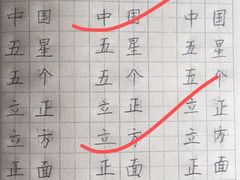 中国 中国 中国
五星 五星 五星
五个 五个 五个
立正 立正 立正
立方 立方 立方
正面 正面 正面